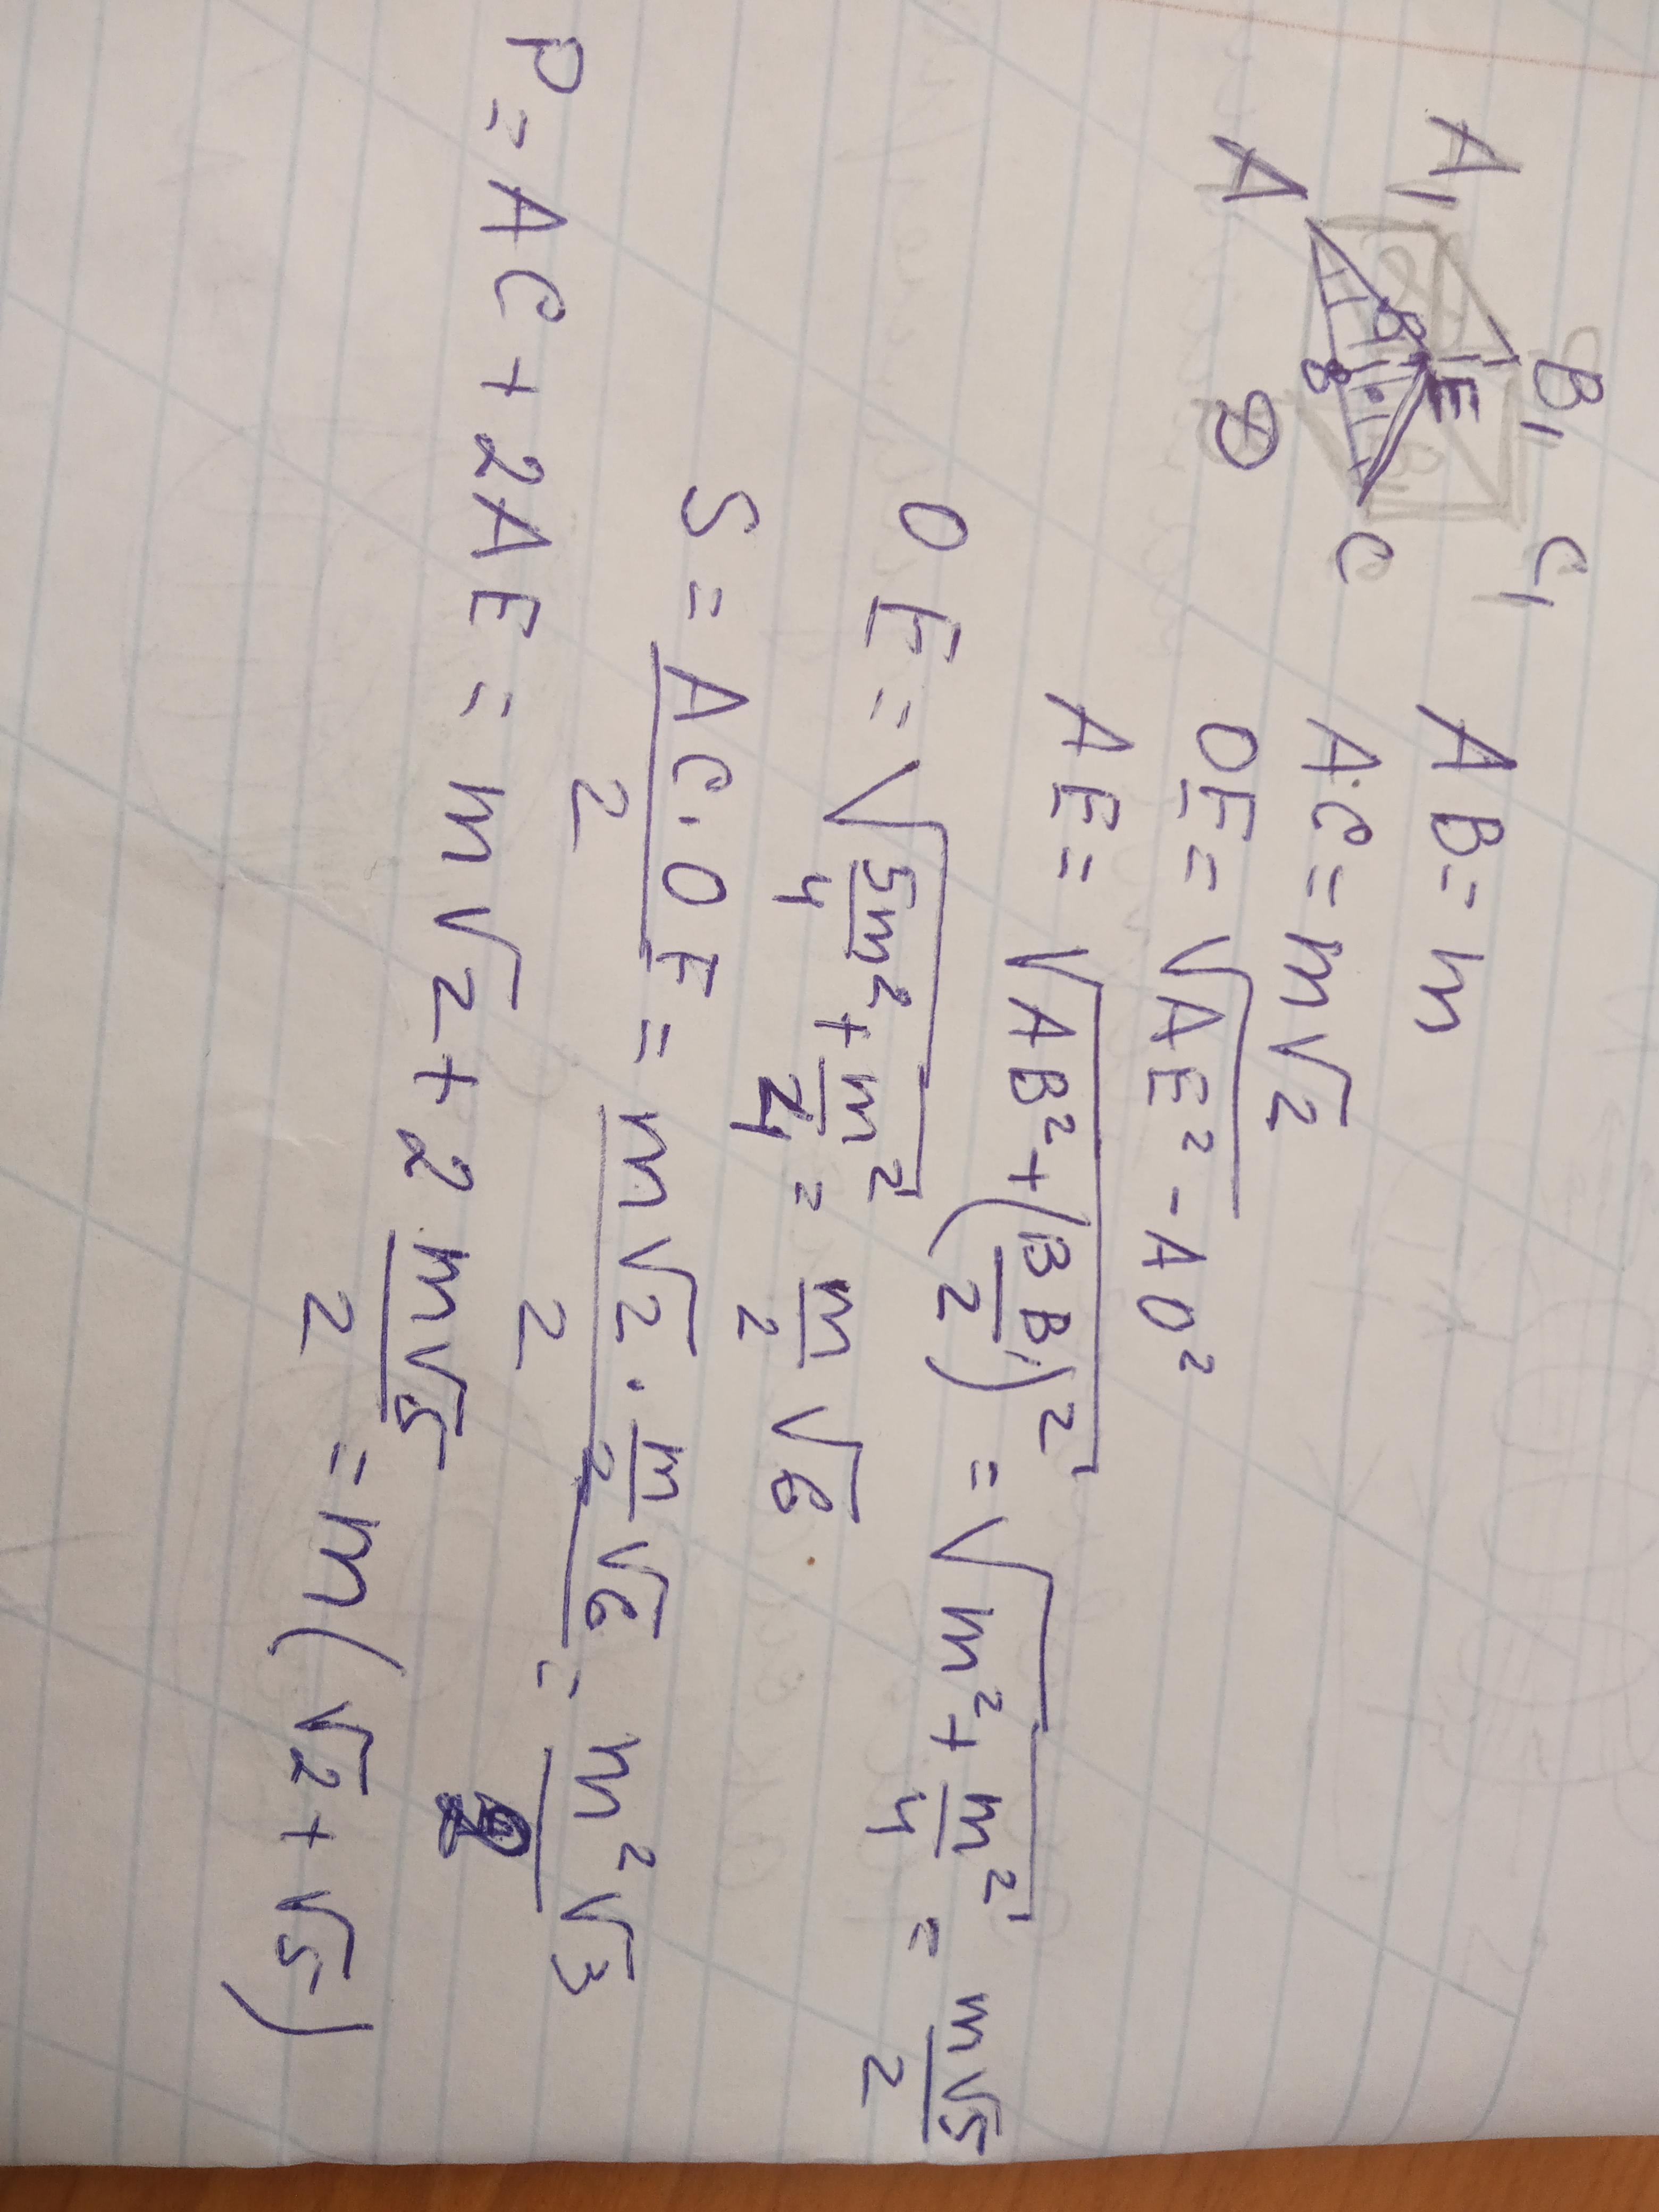 A₁ B₁ C₁
A B C
E
O
D
AB = m
AC = m√2
OE = √(AE² - AO²)
AE = √(AB² + (BB₁/2)²) = √(m² + m²/4) = m√5/2
OE = √(5m²/4 + m²/4) = m/2 √6
S = AC · OE / 2 = m√2 · m/2 √6 / 2 = m²√3/2
P = AC + 2AE = m√2 + 2 m√5/2 = m(√2 + √5)